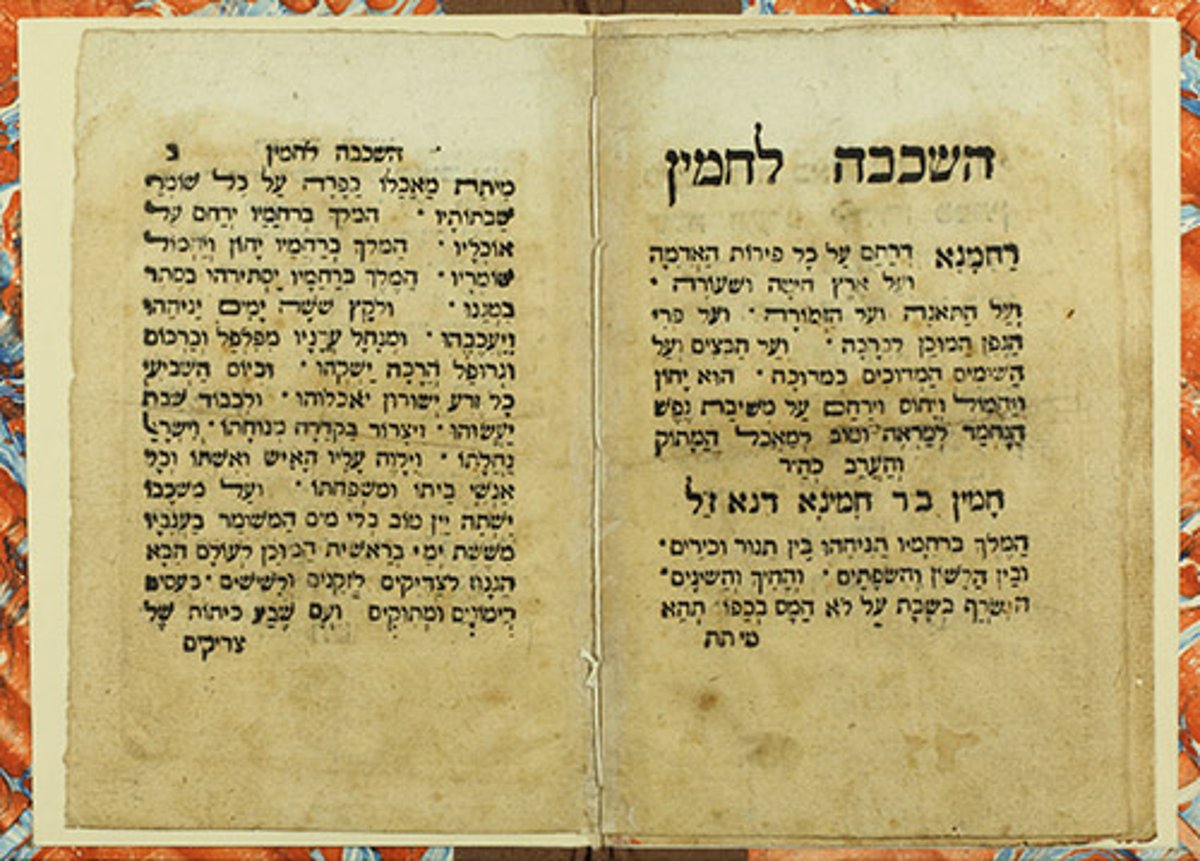 השכבה לחמין
רַחֲמָנָא דְרַחֵם עַל כָל פירות הַאֲדמָה
ועל ארץ חיטה ושעורה ׃
וְעַל הַתאנה ועל הזמורה · ועל פרי
הַגפן המוכן לברכה · ועל הבצים ועל
השומים המדוכים במדוכה · הוא יָחון
וְיַחמול וְיחוס וירחם על משיבת נפש
הַנֶחמד לְמַראֶה וטוב לְמַאכל הַמָתוֹק
וְהָעָרֵב כְהַיר
חָמין בר חמינא דנא ז״ל
הַמלך ברחמיו הַניחהו בֵין תנור וכירים ·
ובין הַלשון והשפתַים · וְהַחֵיך וְהשינַים ·
הנשרף בשבת על לא חמס בכפו תְהֵא
מיתת
השכבה לחמין ב
מיתת מַאֲכלו כַפָרָה עַל כל שומרי
שַבתותָיו · המלך ברחמיו ירַחם על
אוכליו · המלך בְרַחמיו יָחון וְיַחמול
שומריו · הַמֶלך ברחָמיו יַסתירהו בסתר
ולקץ ששָה יָמים יניחהו
ומנחל עֲדָניו מפלפל וכַרכום
הֲרַבֵה יַשקהו · וביום הַשביעי
כָל זרע ישורון יאכלוהו · ולכבוד שבת
יעשוהו · ויצרור בקדרה מנוחתו · וישראל
נַחֲלָתו · וילוה עָליו הָאיש ואשתו וכל
אַנשֵי ביתו ומשפחתו · ועל משכבו
ישתה יין טוב בלי מים המשומר בַעֲנָבָיו
מששת ימי בראשית המוכן לעולם הבא
הגנוז לצדיקים לזקנים ולישישים · בעסיס
רימונים ומתוקים ועם שֶבַע כיתות שֶל
צדיקים